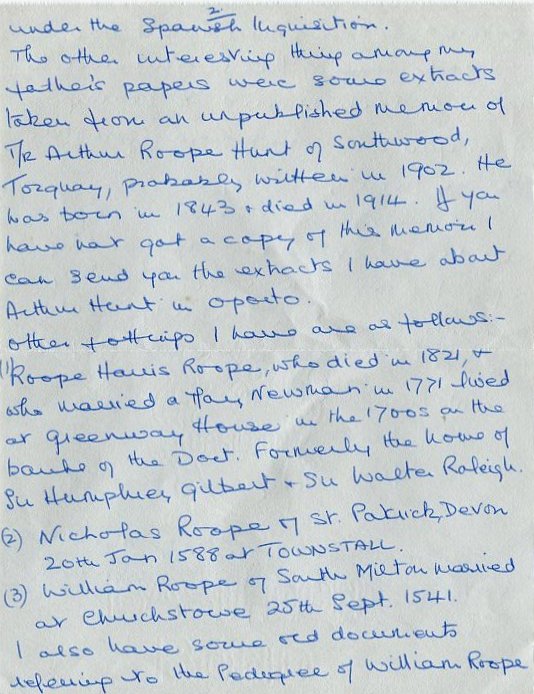 2.
under the Spanish Inquisition.
The other interesting thing among my
father's papers were some extracts
taken from an unpublished memoir of
Mr Arthur Roope Hunt of Southwood,
Torquay, probably written in 1902. He
was born in 1843 & died in 1914. If you
have not got a copy of this memoir I
can send you the extracts I have about
Arthur Hunt in Oporto.
Other jottings I have are as follows:-
(1) Roope Harris Roope, who died in 1821, &
who married a Mary Newman in 1771 lived
at Greenway House in the 1700s on the
banks of the Dart. Formerly the home of
Sir Humphrey Gilbert & Sir Walter Raleigh.
(2) Nicholas Roope of St. Patrick, Devon
20th Jan 1588 at TOWNSTALL.
(3) William Roope of South Milton married
at Churchstowe 25th Sept. 1541.
I also have some old documents
refering to the Pedigree of William Roope